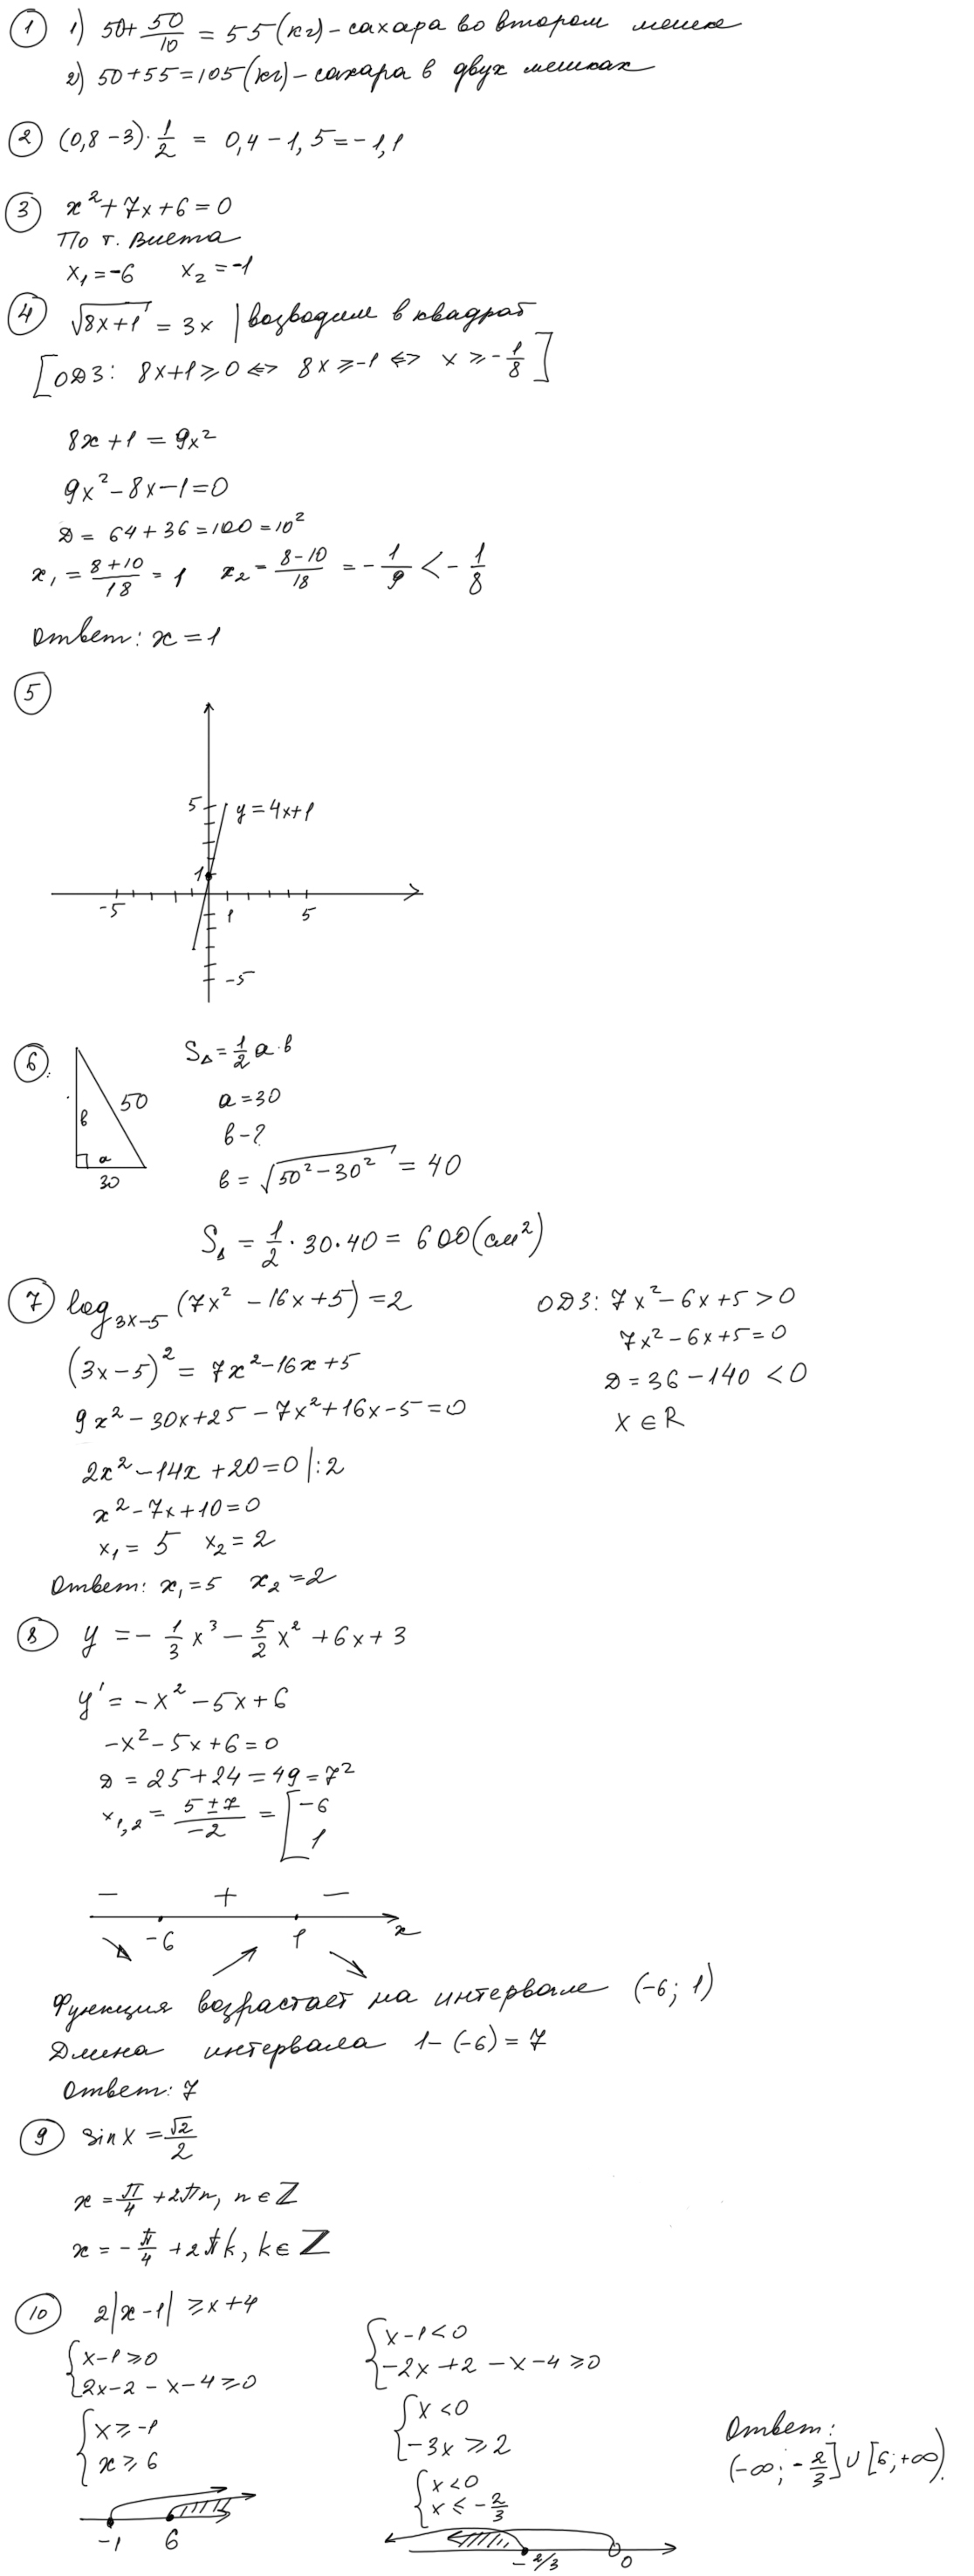 ① 1) 50+ 50/10 = 55 (кг) – сахара во втором мешке
2) 50+55=105 (кг) – сахара в двух мешках
② (0,8 – 3)· 1/2 = 0,4 – 1,5 = –1,1
③ x²+7x+6=0
По т. Виета
x₁=-6 x₂=-1
④ √(8x+1) = 3x | возводим в квадрат
[ОДЗ: 8x+1≥0 ⇔ 8x≥-1 ⇔ x≥-1/8]
8x+1=9x²
9x²-8x-1=0
D= 64+36=100=10²
x₁ = (8+10)/18 = 1 x₂ = (8-10)/18 = -1/9 < -1/8
Ответ: x=1
⑤
5 y=4x+1
1
-5 1 5
-5
⑥ S△=1/2 a·b
50 a=30
b b-?
a
30 b = √(50²-30²) = 40
S△ = 1/2 · 30·40 = 600 (см²)
⑦ log₃ₓ₋₅ (7x² -16x+5)=2 ОДЗ: 7x²-6x+5>0
7x²-6x+5=0
(3x-5)² = 7x²-16x+5
D=36-140<0
9x²-30x+25-7x²+16x-5=0
x∈R
2x²-14x+20=0 |:2
x²-7x+10=0
x₁= 5 x₂=2
Ответ: x₁=5 x₂=2
⑧ y = - 1/3 x³ - 5/2 x² +6x+3
y' = -x² -5x+6
-x²-5x+6=0
D=25+24=49=7²
x₁,₂ = (5±7)/-2 = [-6
1
– + –
-6 1 x
Функция возрастает на интервале (-6; 1)
Длина интервала 1-(-6)=7
Ответ: 7
⑨ sin x = √2/2
x = π/4 +2πn, n∈Z
x = -π/4 +2πk, k∈Z
⑩ 2|x-1| ≥x+4
{x-1≥0
{2x-2-x-4≥0
{x≥-1
{x≥6
-1 6
{x-1<0
{-2x+2-x-4≥0
{x<0
{-3x≥2
{x<0
{x≤-2/3
-2/3 0
Ответ:
(-∞; -2/3]∪[6;+∞).